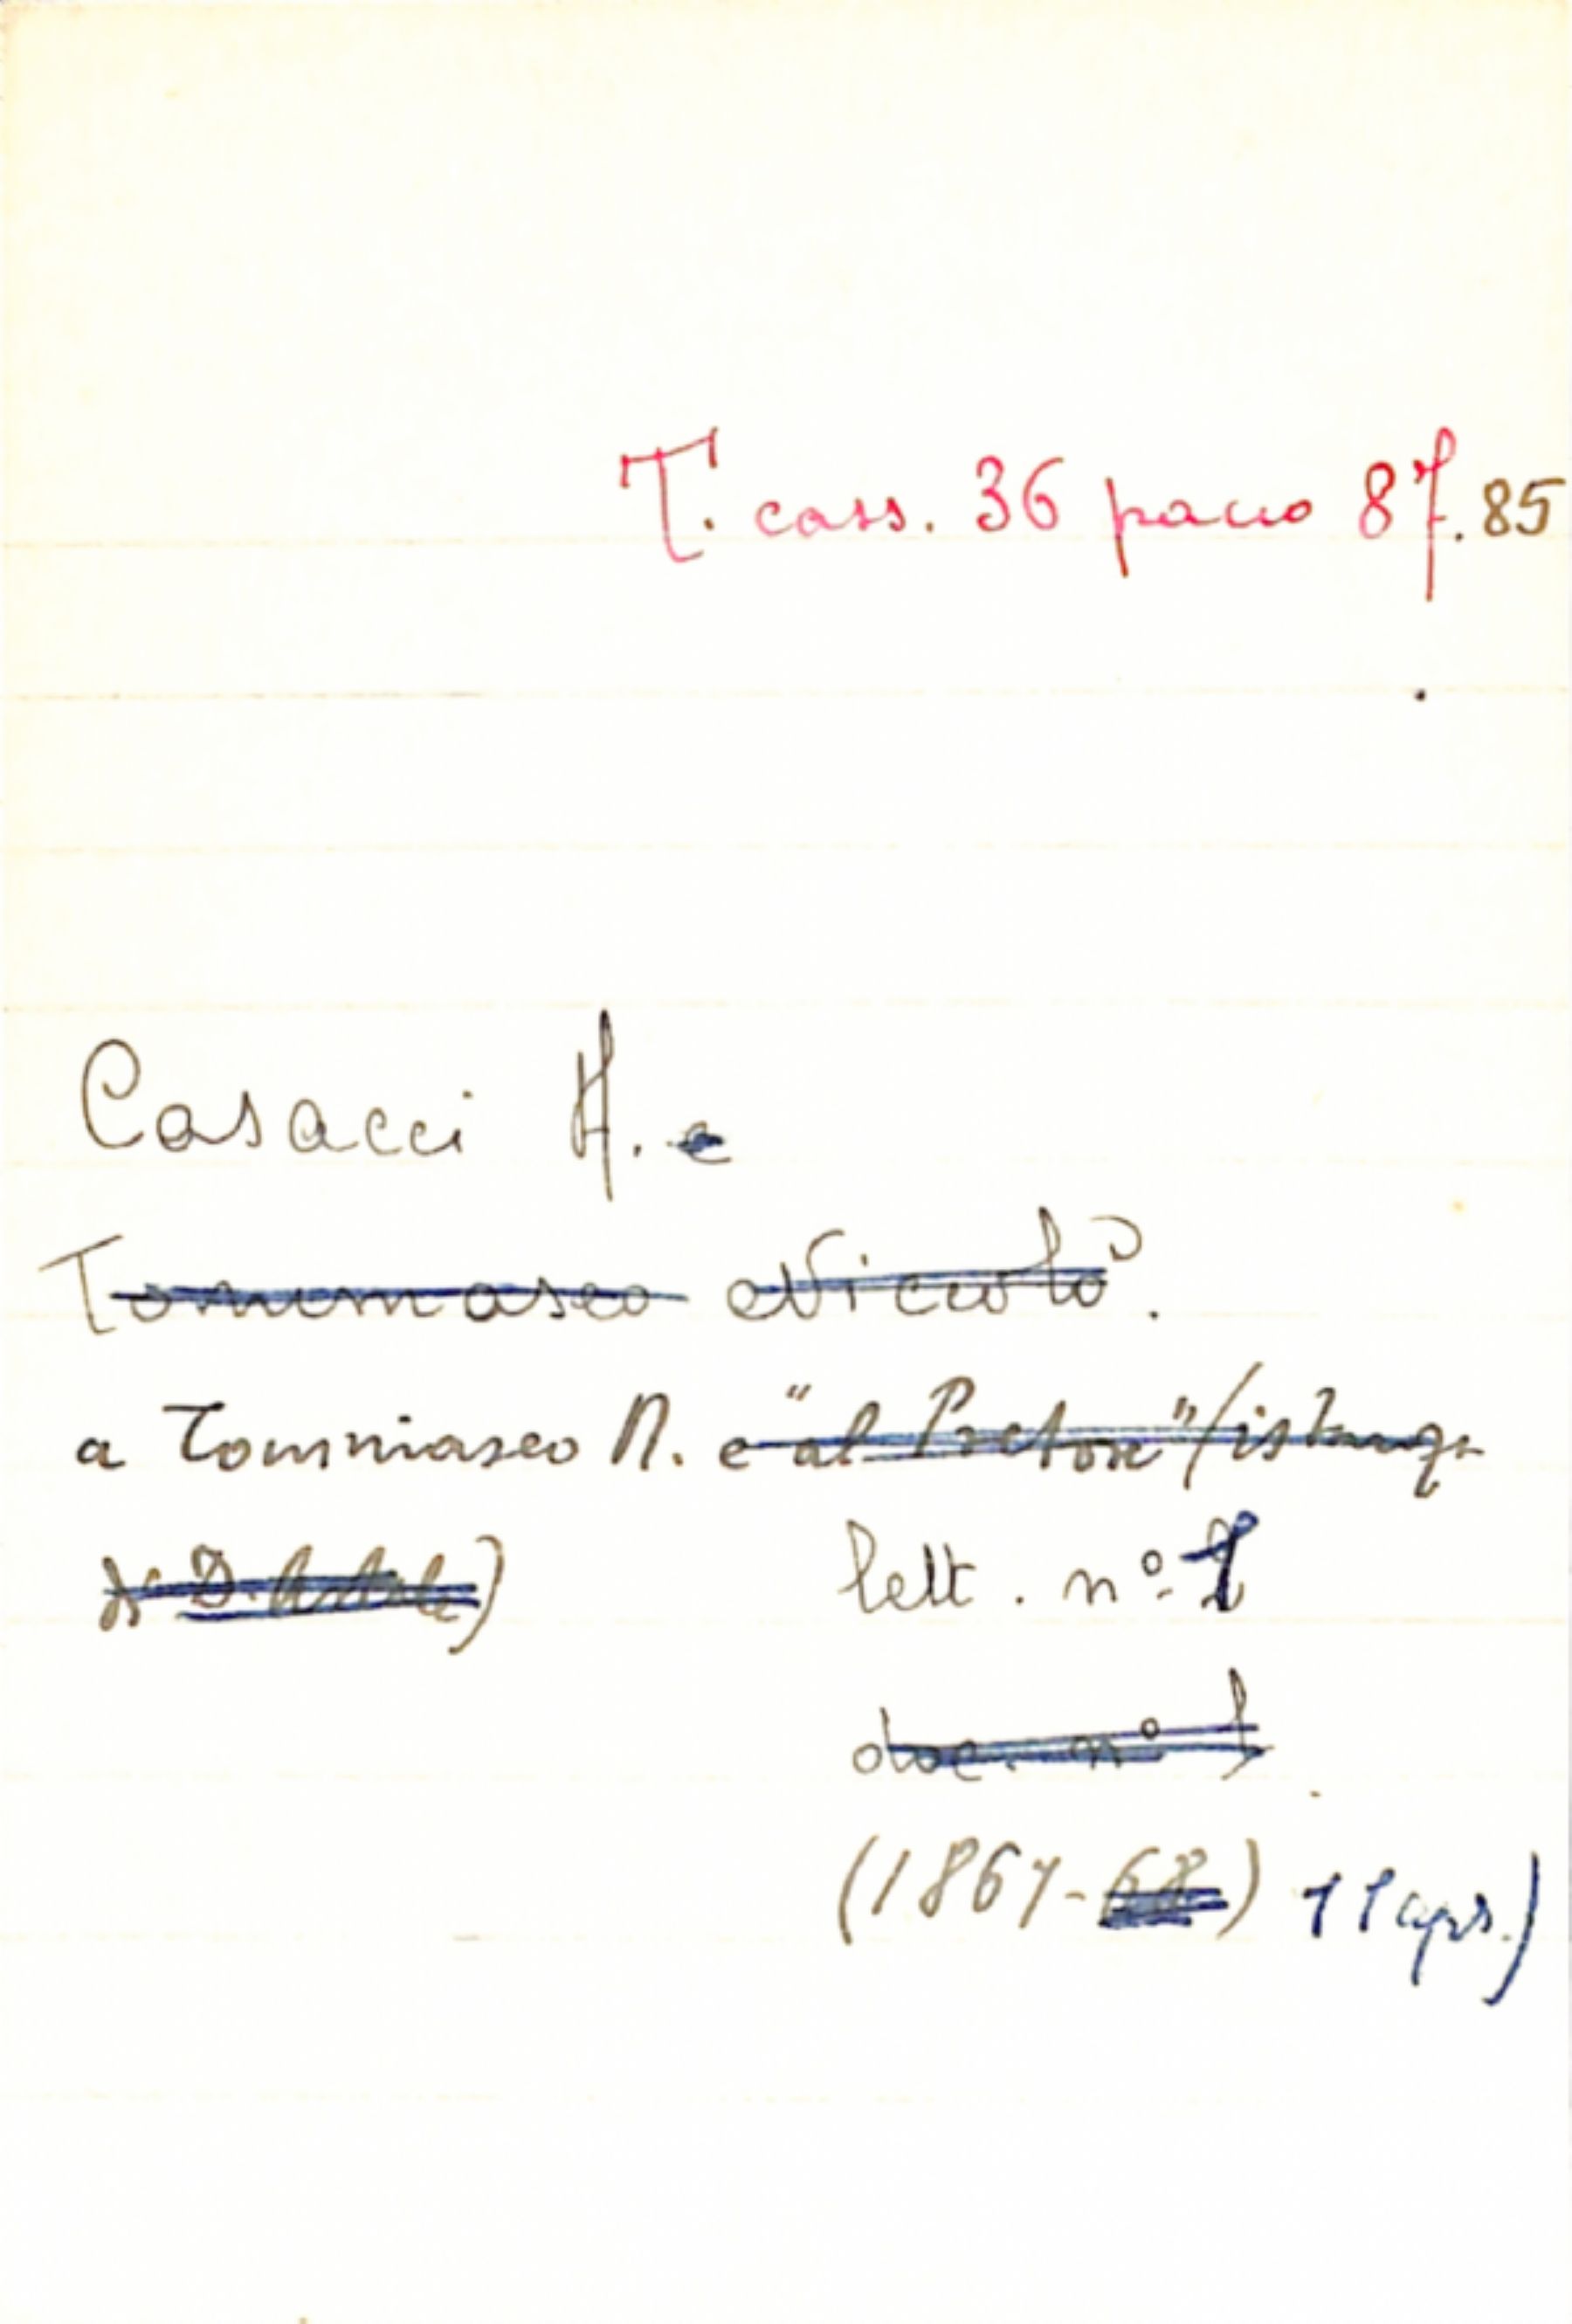 T. cass. 36 pacco 87.85
Casacci A. e
Tommaseo Niccolò.
a Tommaseo N. e "al Pretore" (istanza
di D.
lett. n° 1
doc. n° 1
(1867-68) 11 aps.)